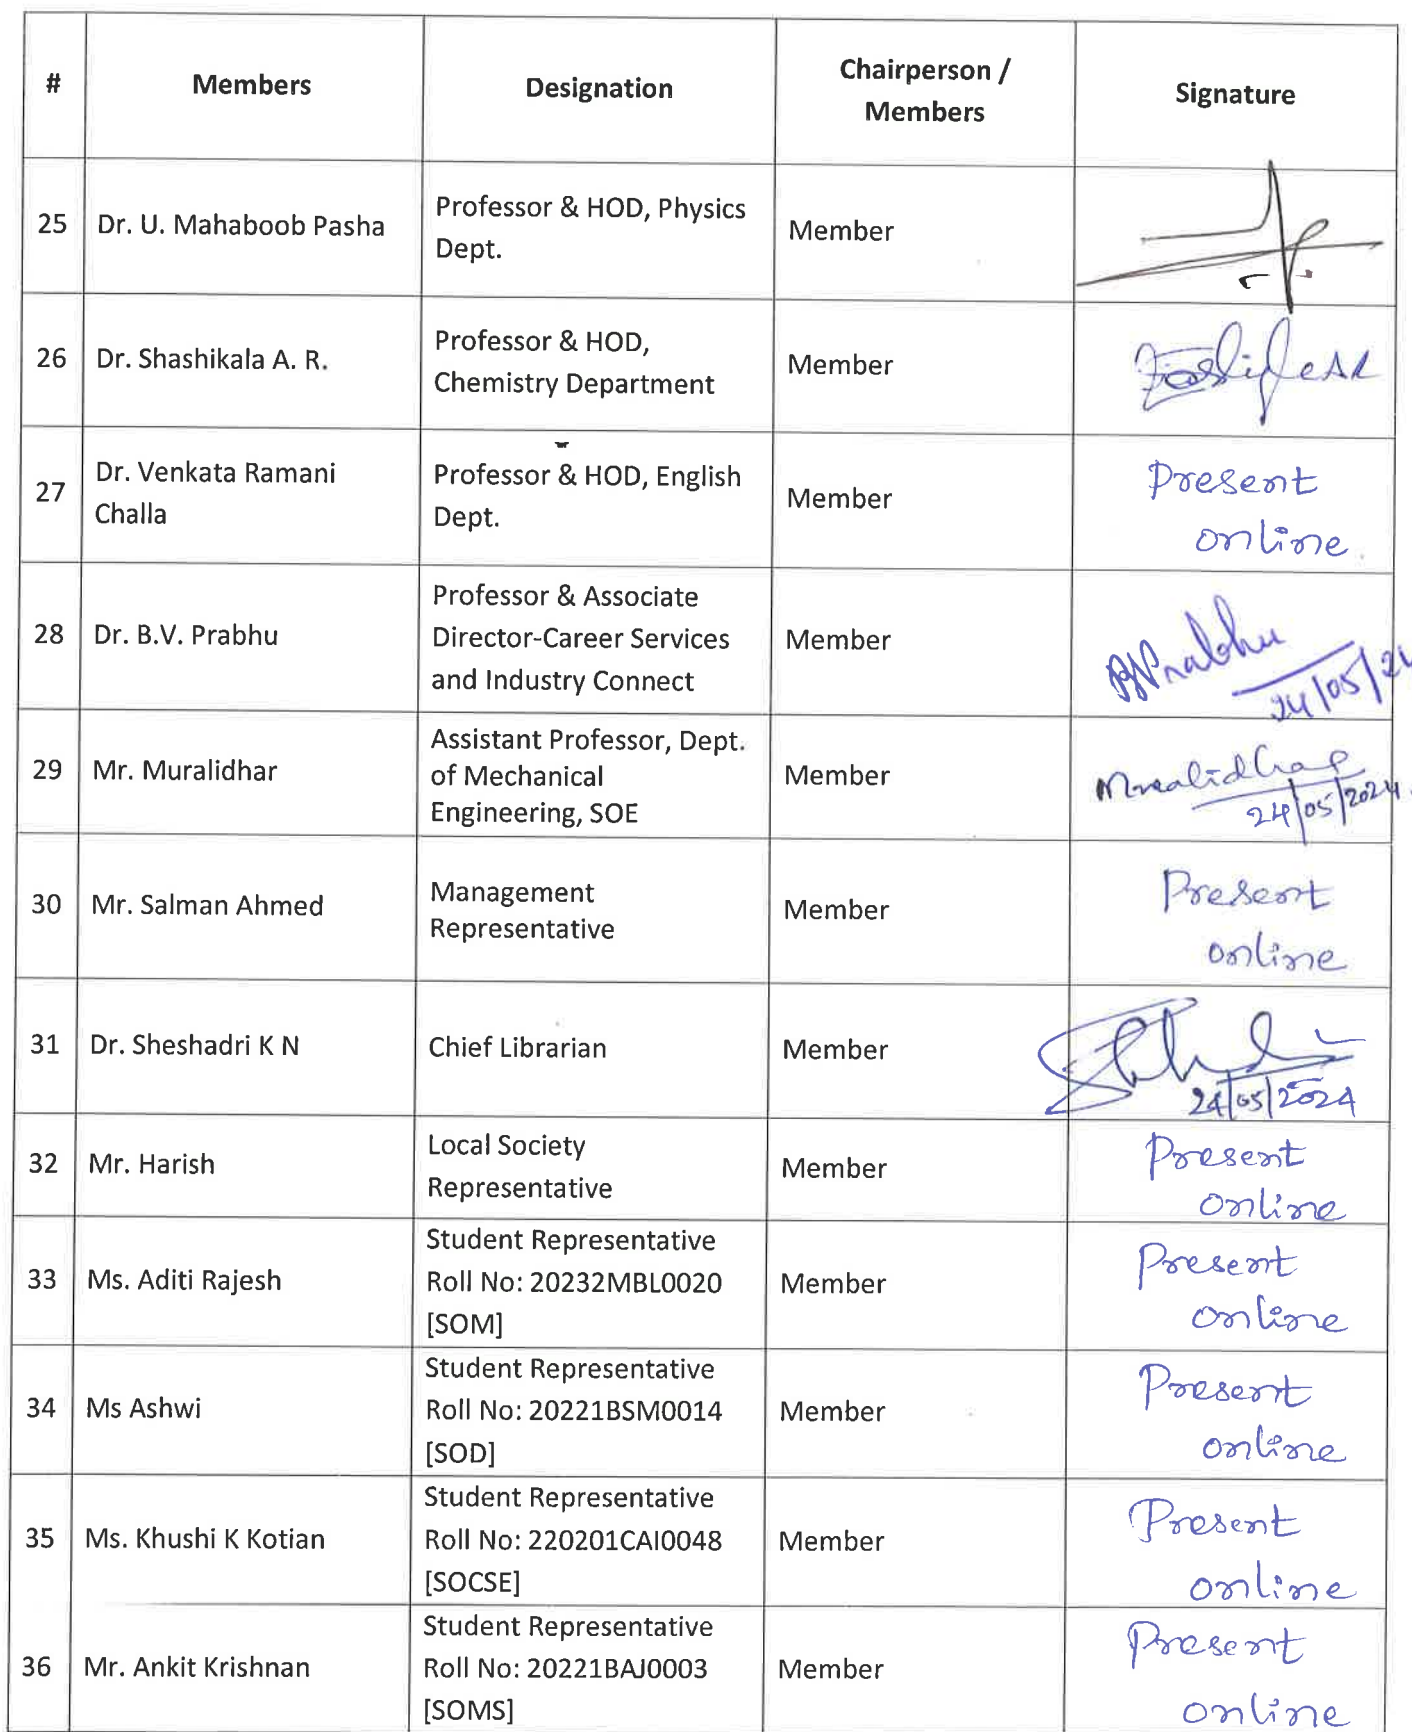 #
Members
Designation
Chairperson /
Members
Signature
25
Dr. U. Mahaboob Pasha
Professor & HOD, Physics
Dept.
Member
26
Dr. Shashikala A. R.
Professor & HOD,
Chemistry Department
Member
27
Dr. Venkata Ramani
Challa
Professor & HOD, English
Dept.
Member
Present
online.
28
Dr. B.V. Prabhu
Professor & Associate
Director-Career Services
and Industry Connect
Member
BVPrabhu
24/05/24
29
Mr. Muralidhar
Assistant Professor, Dept.
of Mechanical
Engineering, SOE
Member
Muralidhar
24/05/2024.
30
Mr. Salman Ahmed
Management
Representative
Member
Present
online
31
Dr. Sheshadri K N
Chief Librarian
Member
24/05/2024
32
Mr. Harish
Local Society
Representative
Member
Present
online
33
Ms. Aditi Rajesh
Student Representative
Roll No: 20232MBL0020
[SOM]
Member
Present
online
34
Ms Ashwi
Student Representative
Roll No: 20221BSM0014
[SOD]
Member
Present
online
35
Ms. Khushi K Kotian
Student Representative
Roll No: 220201CAI0048
[SOCSE]
Member
Present
online
36
Mr. Ankit Krishnan
Student Representative
Roll No: 20221BAJ0003
[SOMS]
Member
Present
online